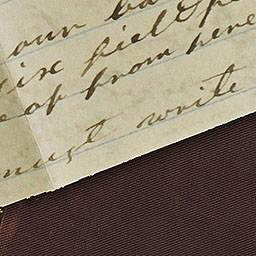 our ba
six field
of from here
must write